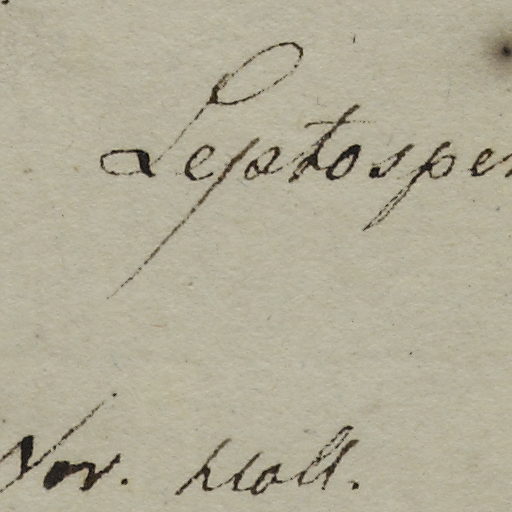 Leptosper
Nov. Holl.